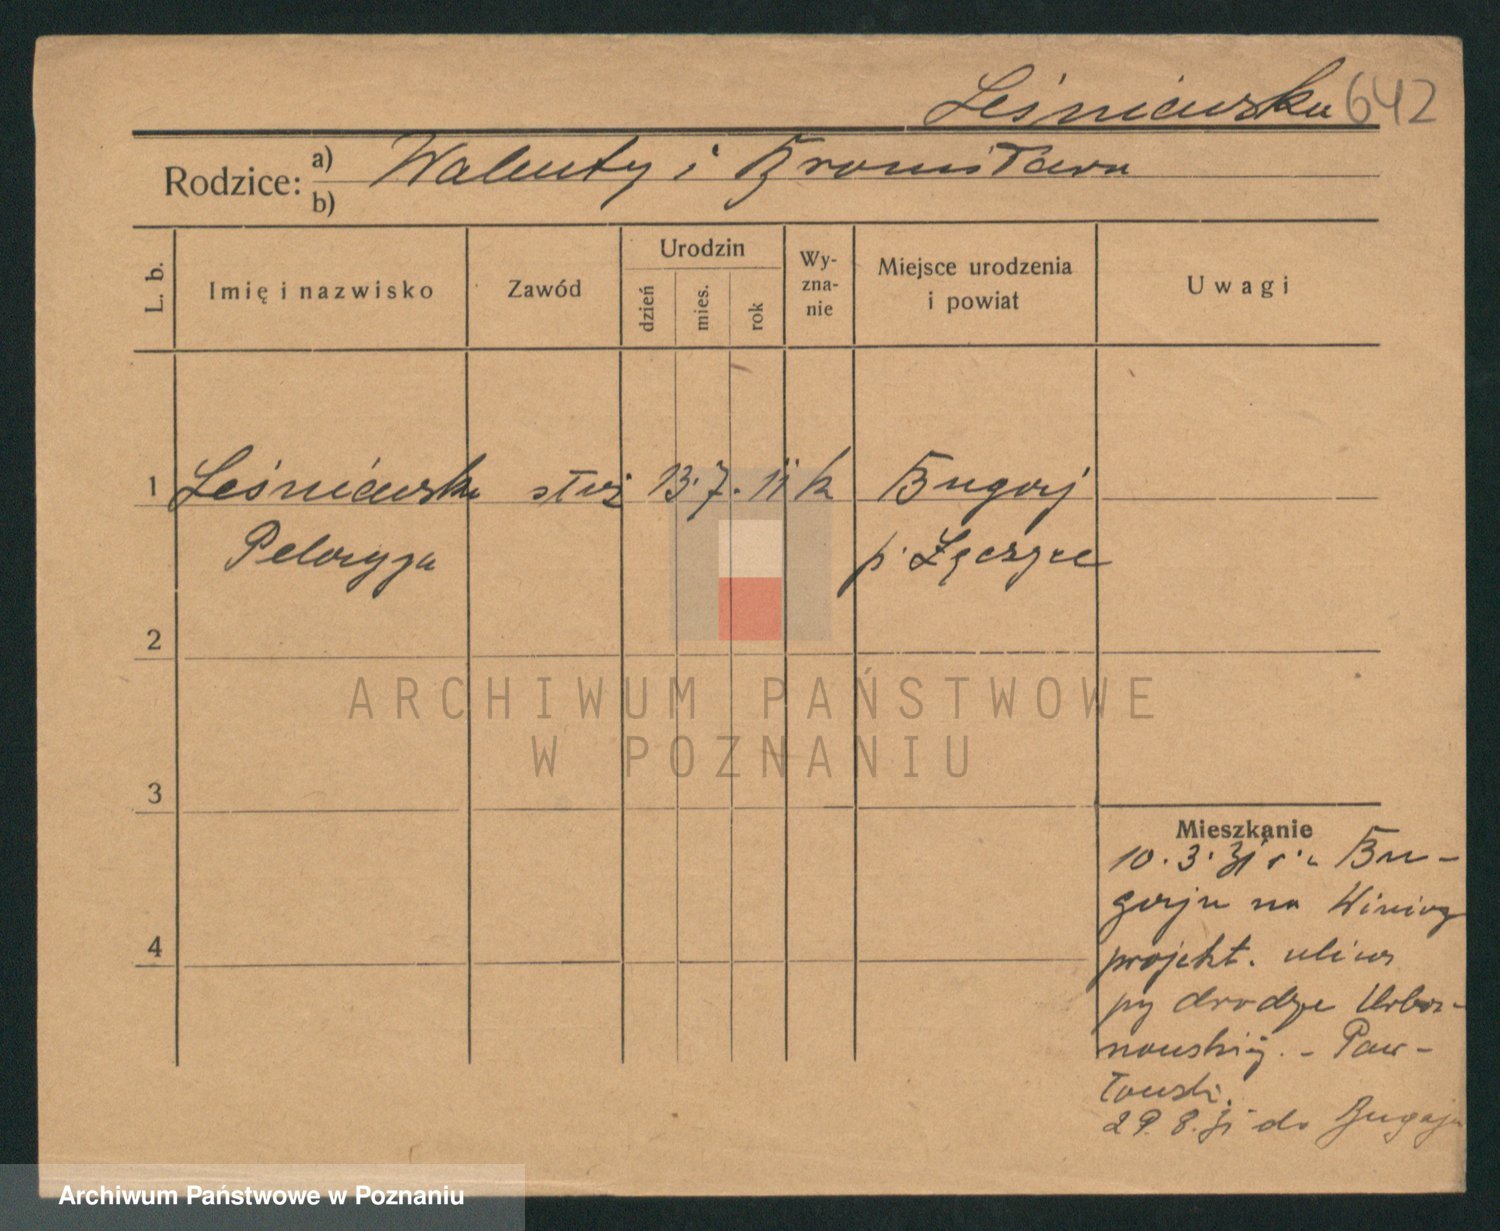 Leśniewska 642
Rodzice: a) Walenty i Bronisława
b)
L. b. Imię i nazwisko Zawód Urodzin dzień mies. rok Wy-zna-nie Miejsce urodzenia i powiat Uwagi
1 Leśniewska służ 13. 7. 11 k Bugaj
Pelagja p. Łęczyce
2
3
4
Mieszkanie
10. 3. 31 r. z Bu-
gaju na Winiary
projekt. ulica
py drodze Urba-
nowskiej. - Paw-
łowski.
29. 8. 31 do Bugaju
ARCHIWUM PAŃSTWOWE
W POZNANIU
Archiwum Państwowe w Poznaniu